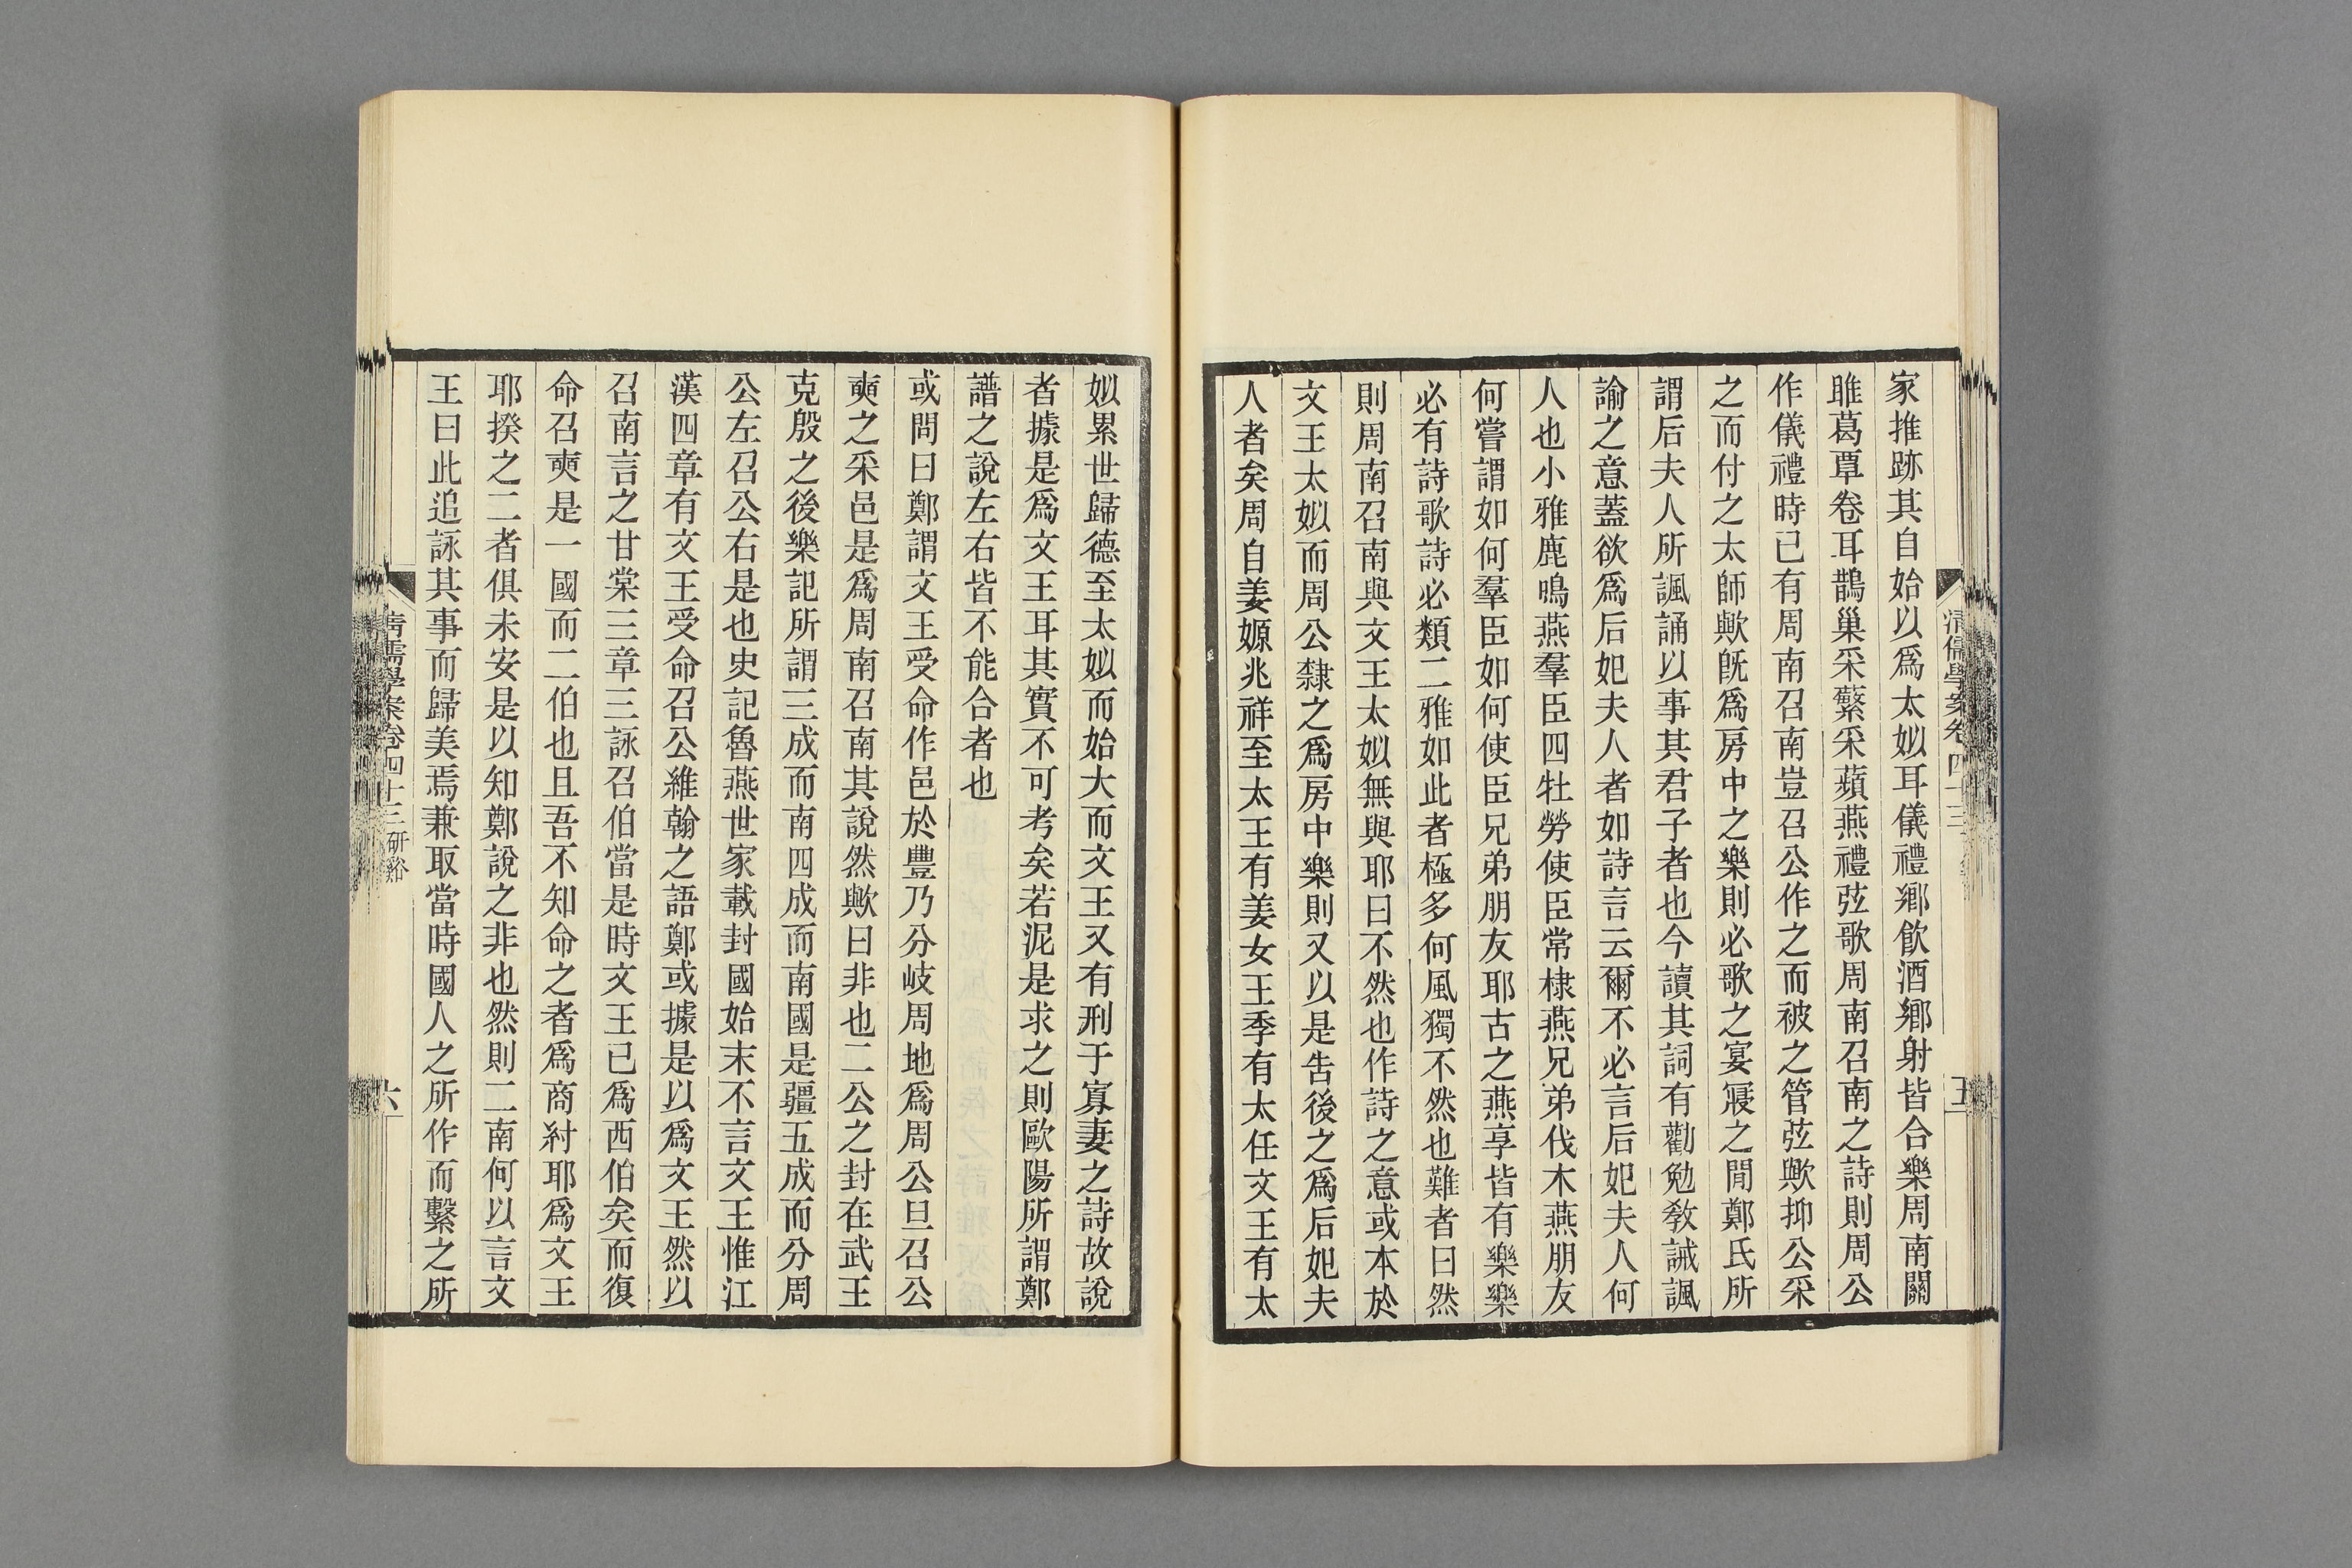 家推跡其自始以爲太姒耳儀禮鄕飮酒鄕射皆合樂周南關
雎葛覃卷耳鵲巢采蘩采蘋燕禮弦歌周南召南之詩則周公
作儀禮時已有周南召南豈召公作之而被之管弦歟抑公采
之而付之太師歟旣爲房中之樂則必歌之宴寢之閒鄭氏所
謂后夫人所諷誦以事其君子者也今讀其詞有勸勉敎誡諷
諭之意蓋欲爲后妃夫人者如詩言云爾不必言后妃夫人何
人也小雅鹿鳴燕羣臣四牡勞使臣常棣燕兄弟伐木燕朋友
何嘗謂如何羣臣如何使臣兄弟朋友耶古之燕享皆有樂樂
必有詩歌詩必類二雅如此者極多何風獨不然也難者曰然
則周南召南與文王太姒無與耶曰不然也作詩之意或本於
文王太姒而周公隸之爲房中樂則又以是吿後之爲后妃夫
人者矣周自姜嫄兆祥至太王有姜女王季有太任文王有太
清儒學案卷四十三
五
姒累世歸德至太姒而始大而文王又有刑于寡妻之詩故說
者據是爲文王耳其實不可考矣若泥是求之則歐陽所謂鄭
譜之說左右皆不能合者也
或問曰鄭謂文王受命作邑於豐乃分岐周地爲周公旦召公
奭之采邑是爲周南召南其說然歟曰非也二公之封在武王
克殷之後樂記所謂三成而南四成而南國是疆五成而分周
公左召公右是也史記魯燕世家載封國始末不言文王惟江
漢四章有文王受命召公維翰之語鄭或據是以爲文王然以
召南言之甘棠三章三詠召伯當是時文王已爲西伯矣而復
命召奭是一國而二伯也且吾不知命之者爲商紂耶爲文王
耶揆之二者俱未安是以知鄭說之非也然則二南何以言文
王曰此追詠其事而歸美焉兼取當時國人之所作而繫之所
清儒學案卷四十三 研谿
六